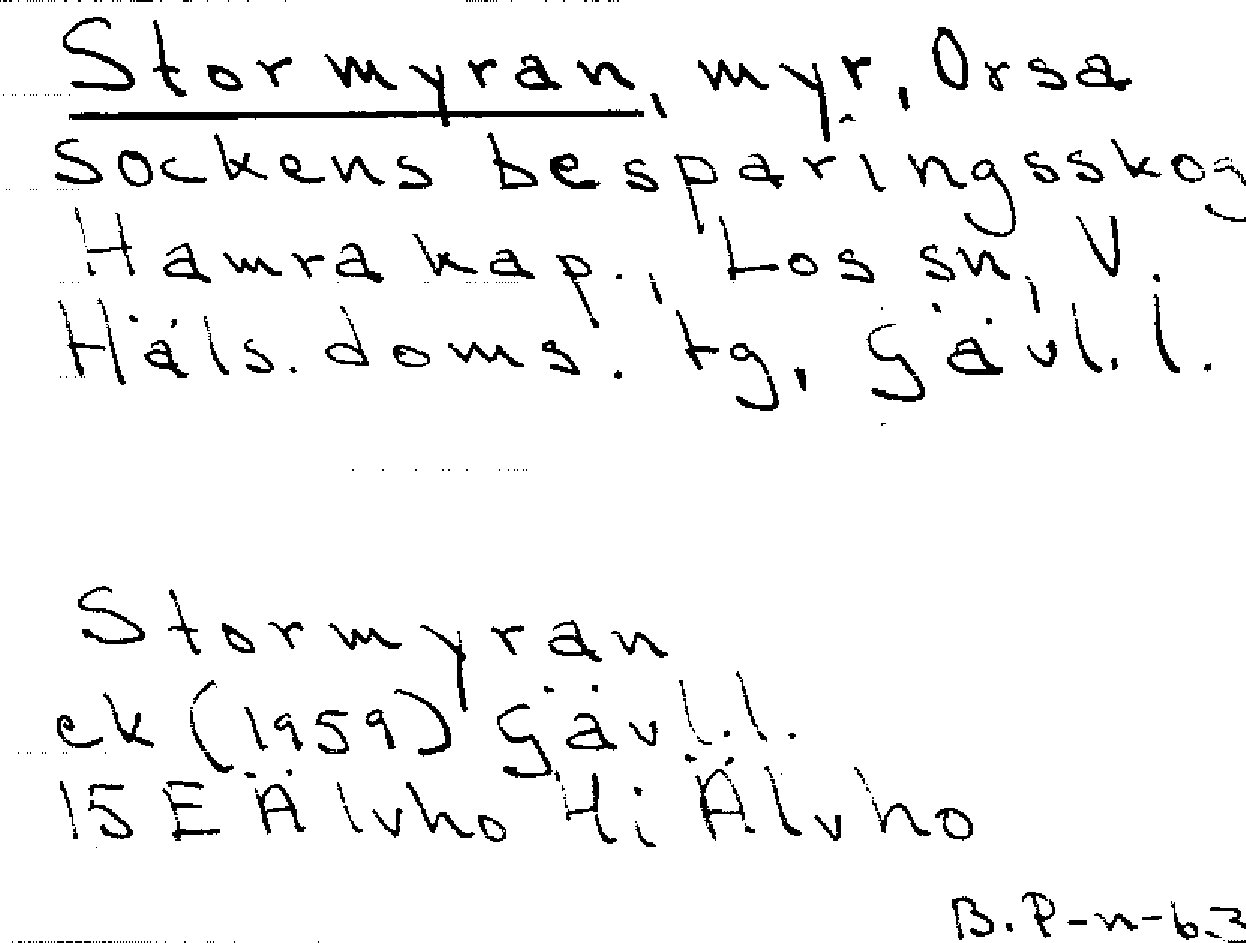 Stormyran, myr, Orsa
Sockens besparingsskog
Hamra kap., Los sn, V.
Häls. doms. tg, Gävl. l.
Stormyran
ek (1959) Gävl. l.
15 E Älvho 4i Älvho
B.P-n-63